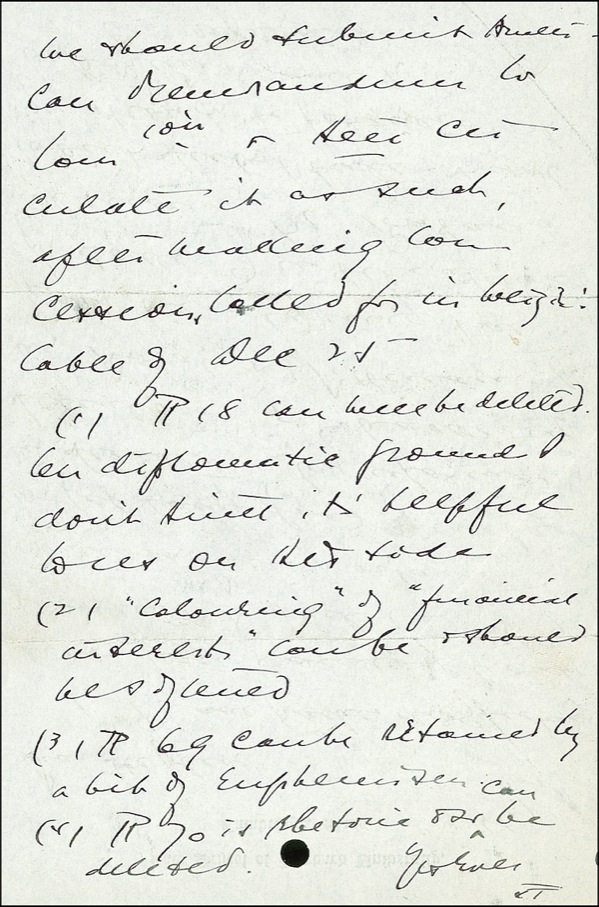 we should submit Ameri-
can Memorandum to
Com & then cir
culate it as such,
after making con
cessions called for in
Cable of Dec 25
(1) ¶ 18 can be deleted.
on diplomatic ground I
don't think it is helpful
ones on this side
(2) "Colouring" of "financial
interests" can be & should
be softened
(3) ¶ 69 can be retained by
a bit of Euphemism
can
(4) ¶ 70 is rhetoric & be
deleted. Yrs Ever